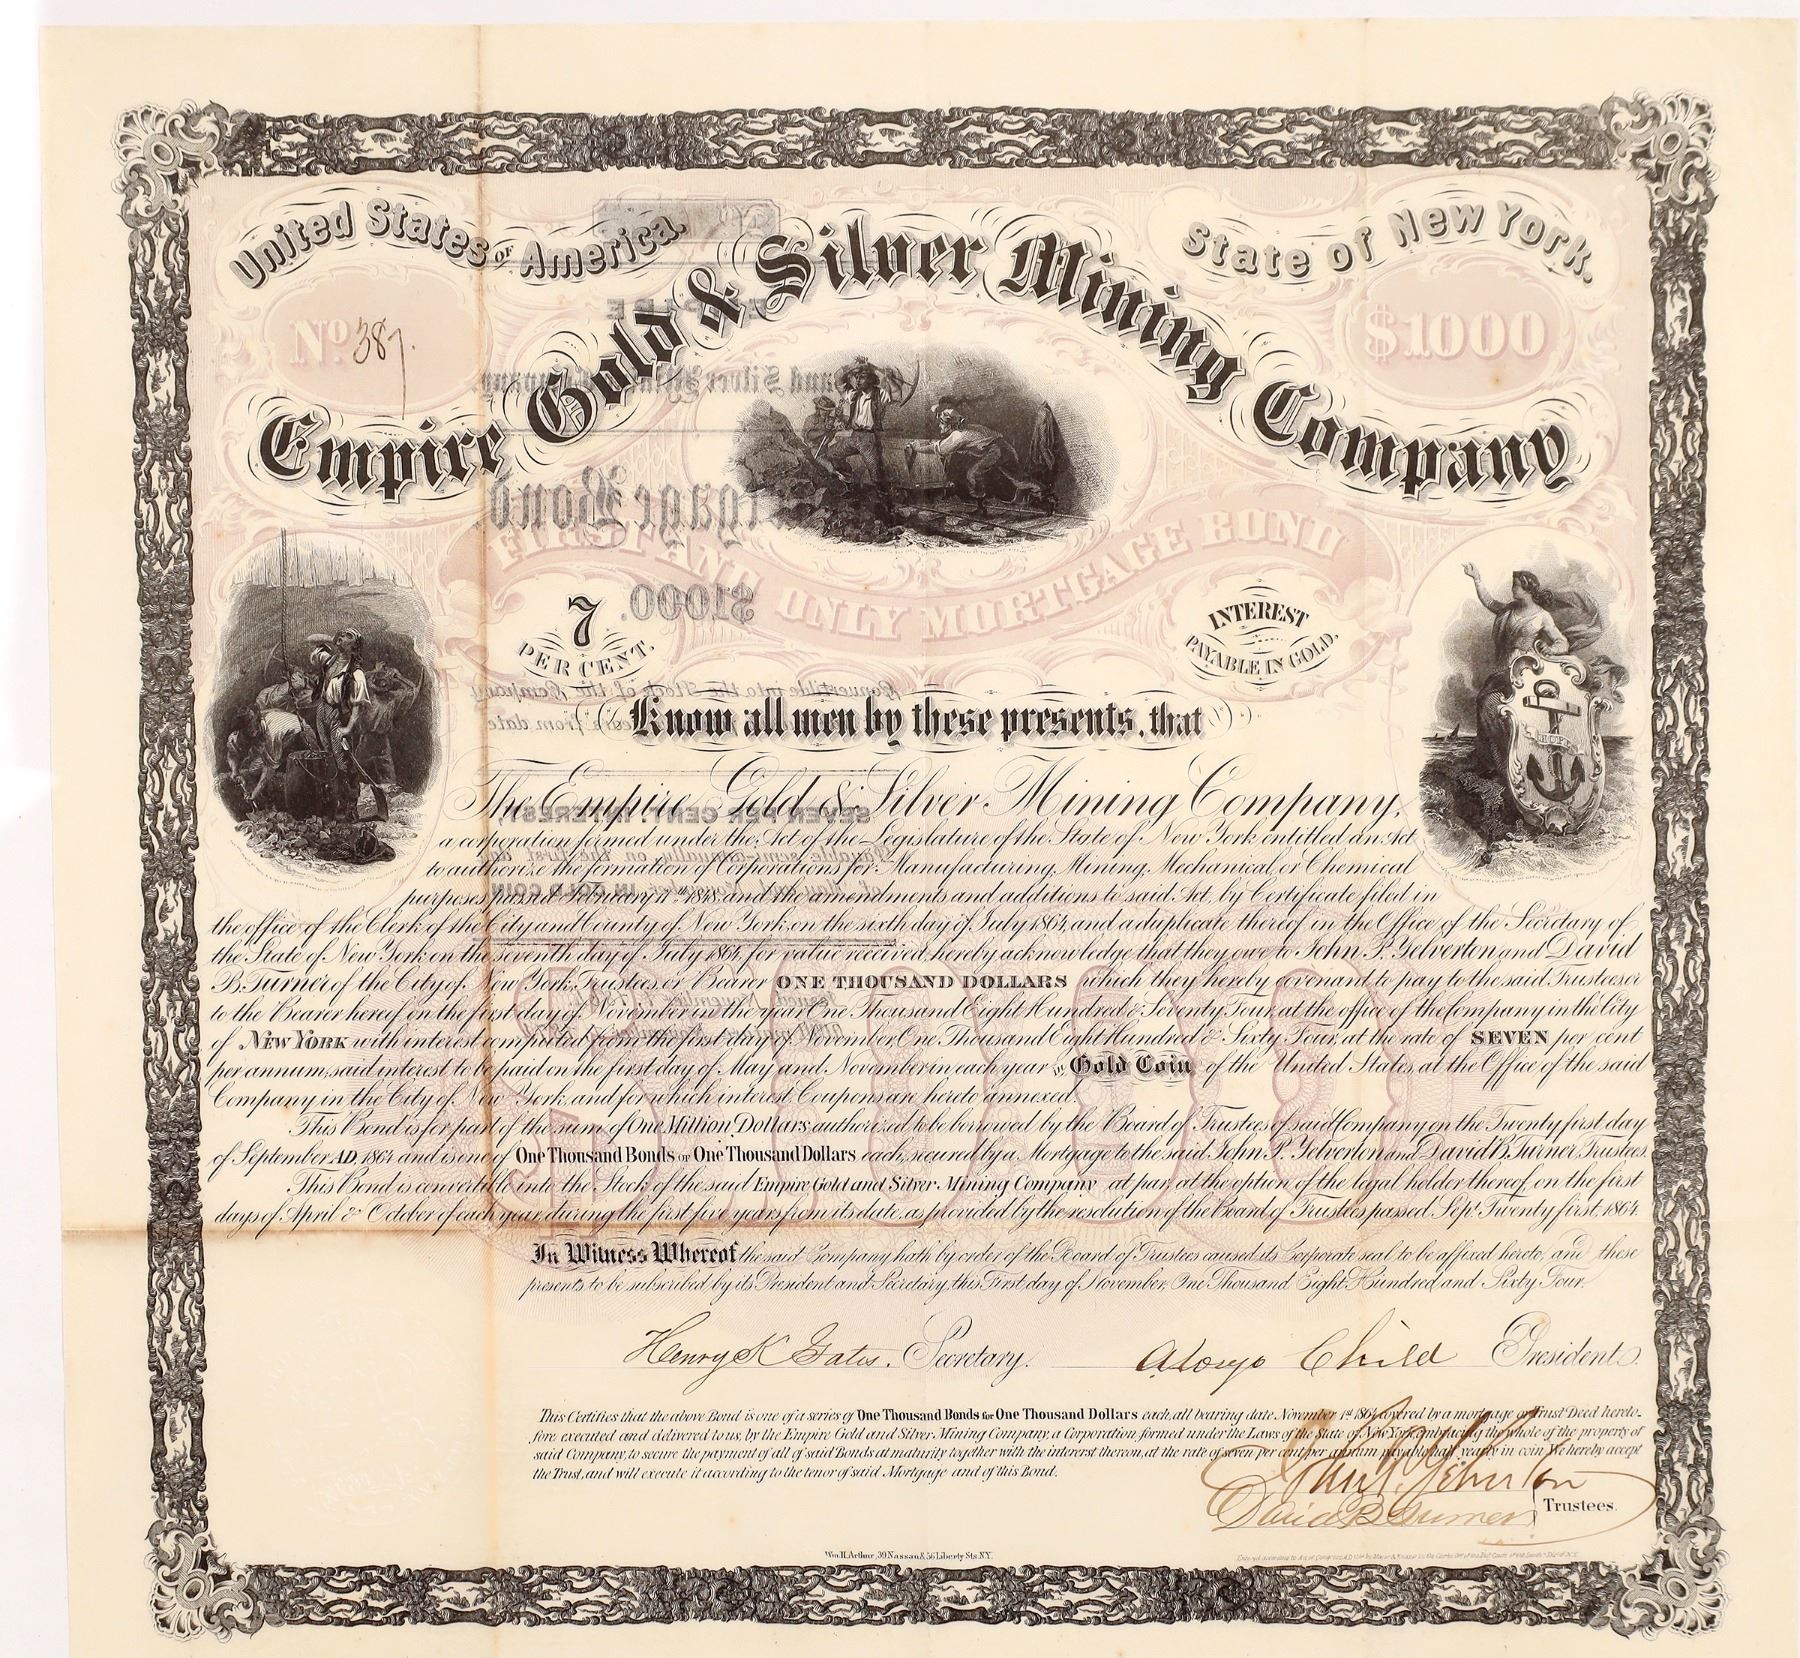 United States of America.
State of New York.
No. 387.
$1000
Empire Gold & Silver Mining Company
FIRST AND ONLY MORTGAGE BOND
7
PER CENT.
INTEREST
PAYABLE IN GOLD.
HOPE
Know all men by these presents, that
The Empire Gold & Silver Mining Company,
a corporation formed under the Act of the Legislature of the State of New York entitled an Act
to authorize the formation of Corporations for Manufacturing, Mining, Mechanical, or Chemical
purposes passed February 17th 1848, and the amendments and additions to said Act, by Certificate filed in
the office of the Clerk of the City and County of New York, on the sixth day of July 1864, and a duplicate thereof in the Office of the Secretary of
the State of New York on the seventh day of July 1864, for value received, hereby acknowledge that they owe to John P. Yelverton and David
B. Turner of the City of New York, Trustees, or Bearer ONE THOUSAND DOLLARS which they hereby covenant to pay to the said Trustees or
to the Bearer hereof on the first day of November in the year One Thousand Eight Hundred & Seventy Four, at the office of the Company in the City
of NEW YORK with interest computed from the first day of November, One Thousand Eight Hundred & Sixty Four, at the rate of SEVEN per cent
per annum, said interest to be paid on the first day of May and November in each year in Gold Coin of the United States, at the Office of the said
Company, in the City of New York, and for which interest, Coupons are hereto annexed.
This Bond is for part of the sum of One Million Dollars, authorized to be borrowed by the Board of Trustees of said Company on the Twenty first day
of September AD. 1864 and is one of One Thousand Bonds of One Thousand Dollars each, secured by a Mortgage to the said John P. Yelverton and David B. Turner Trustees.
This Bond is convertible into the Stock of the said Empire Gold and Silver Mining Company at par, at the option of the legal holder thereof, on the first
days of April & October of each year, during the first five years from its date, as provided by the resolution of the Board of Trustees passed Sept. Twenty first, 1864.
In Witness Whereof the said Company hath by order of the Board of Trustees caused its Corporate seal to be affixed hereto, and these
presents to be subscribed by its President and Secretary, this First day of November, One Thousand Eight Hundred and Sixty Four.
Henry K Gates. Secretary. Alonzo Child President.
This Certifies that the above Bond is one of a series of One Thousand Bonds for One Thousand Dollars each, all bearing date November 1st 1864 covered by a mortgage or Trust Deed hereto-
fore executed and delivered to us, by the Empire Gold and Silver Mining Company, a Corporation formed under the Laws of the State of New York, embracing the whole of the property of
said Company, to secure the payment of all of said Bonds at maturity together with the interest thereon, at the rate of seven per cent per annum payable half yearly in coin. We hereby accept
the Trust, and will execute it according to the tenor of said Mortgage and of this Bond.
John P. Yelverton
David B Turner
Trustees.
Wm. H. Arthur, 39 Nassau & 56 Liberty Sts. N.Y.